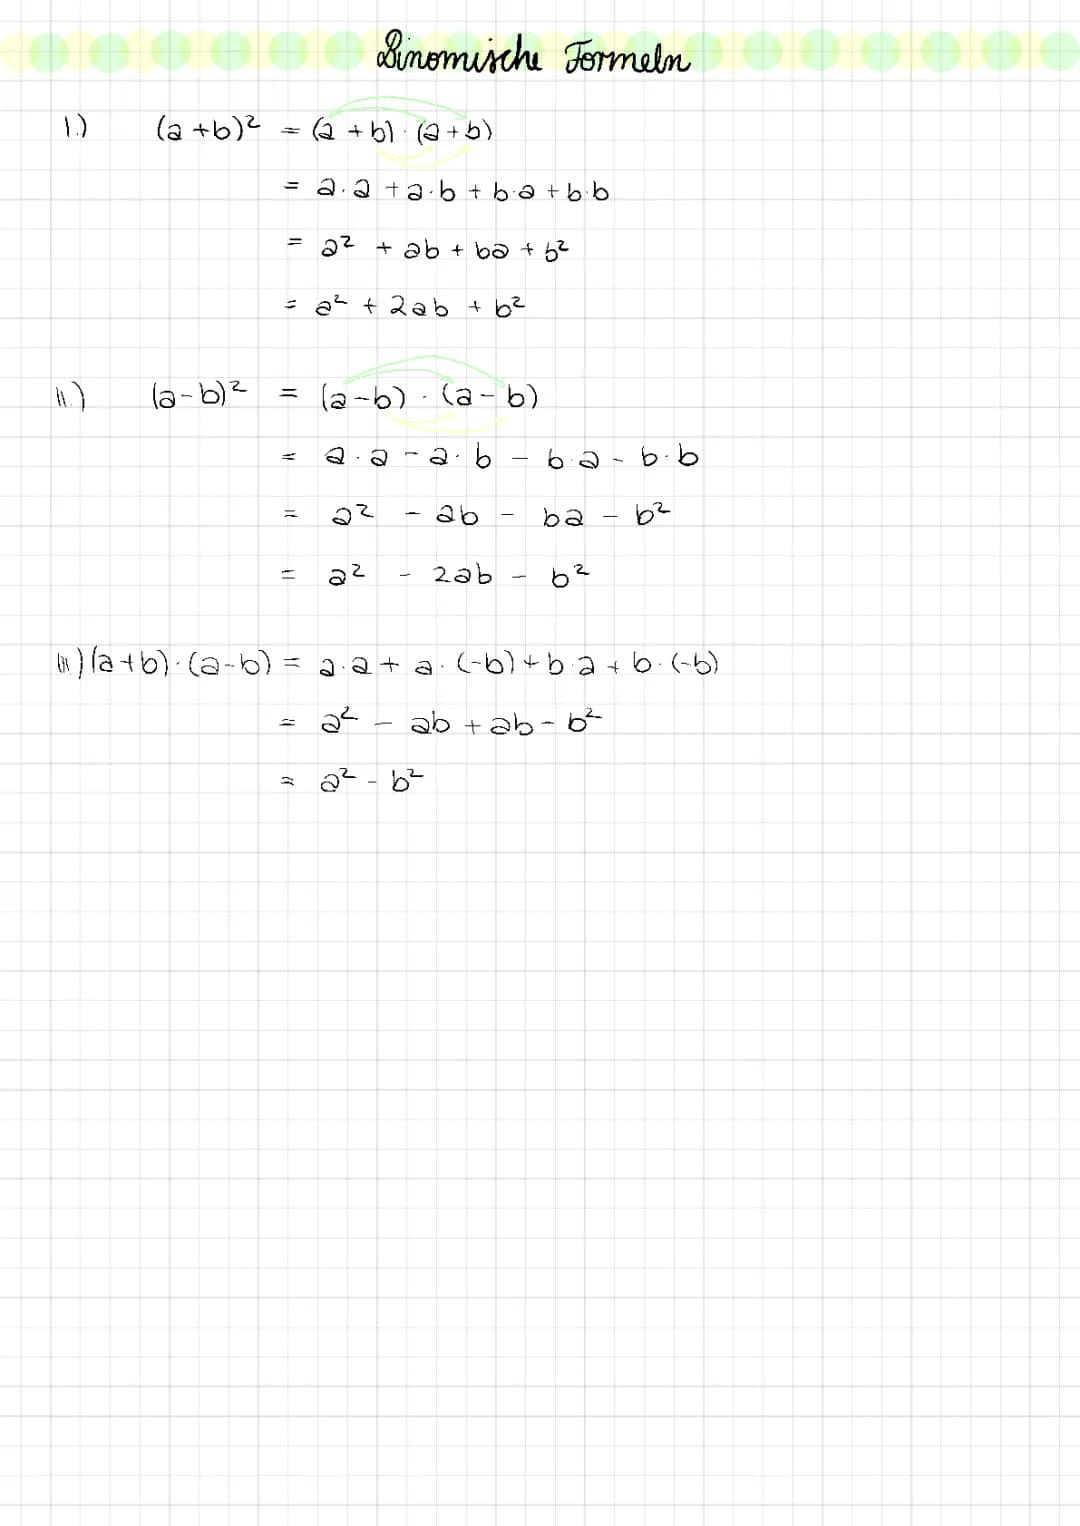 Binomische Formeln
I.) (a+b)² = (a+b)·(a+b)
= a·a + a·b + b·a + b·b
= a² + ab + ba + b²
= a² + 2ab + b²
II.) (a-b)² = (a-b)·(a-b)
= a·a - a·b - b·a - b·b
= a² - ab - ba - b²
= a² - 2ab - b²
III) (a+b)·(a-b) = a·a + a·(-b) + b·a + b·(-b)
= a² - ab + ab - b²
= a² - b²